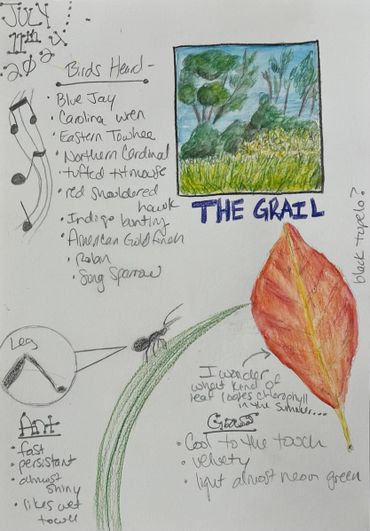 JULY
11th
202
Birds Heard -
• Blue Jay
• Carolina wren
• Eastern Towhee
• Northern Cardinal
• tufted titmouse
• red shouldered
hawk
• Indigo bunting
• American Goldfinch
• Robin
• Song Sparrow
THE GRAIL
black tupelo?
I wonder
what kind of
leaf looses chlorophyll
in the summer...
Leg
Ant
• fast
• persistant
• almost
shiny
• likes wet
towel
Grass
• Cool to the touch
• velvety
• light almost neon green